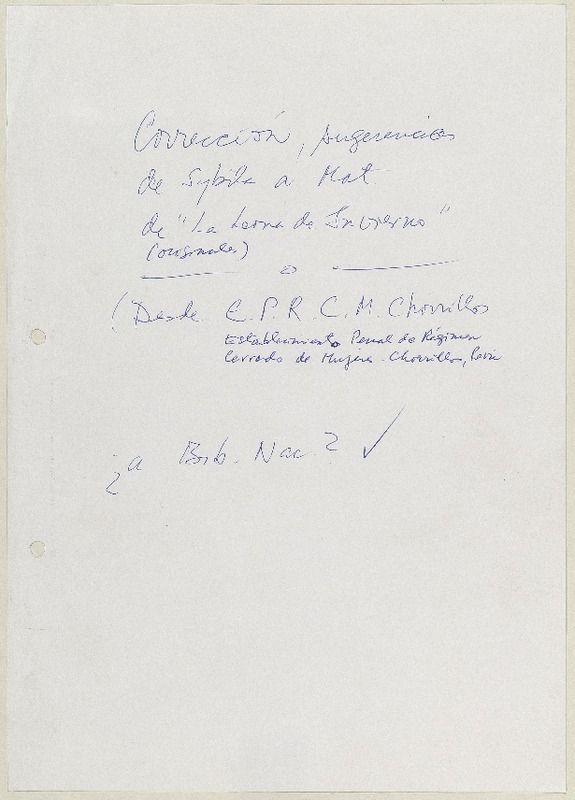 Corrección, sugerencias
de Sybila a Mat.
de "La Leona de Invierno"
(originales)
(Desde E.P.R.C.M. Chorrillos
Establecimiento Penal de Régimen
Cerrado de Mujeres - Chorrillos, Perú
¿a Bib. Nac.? ✓